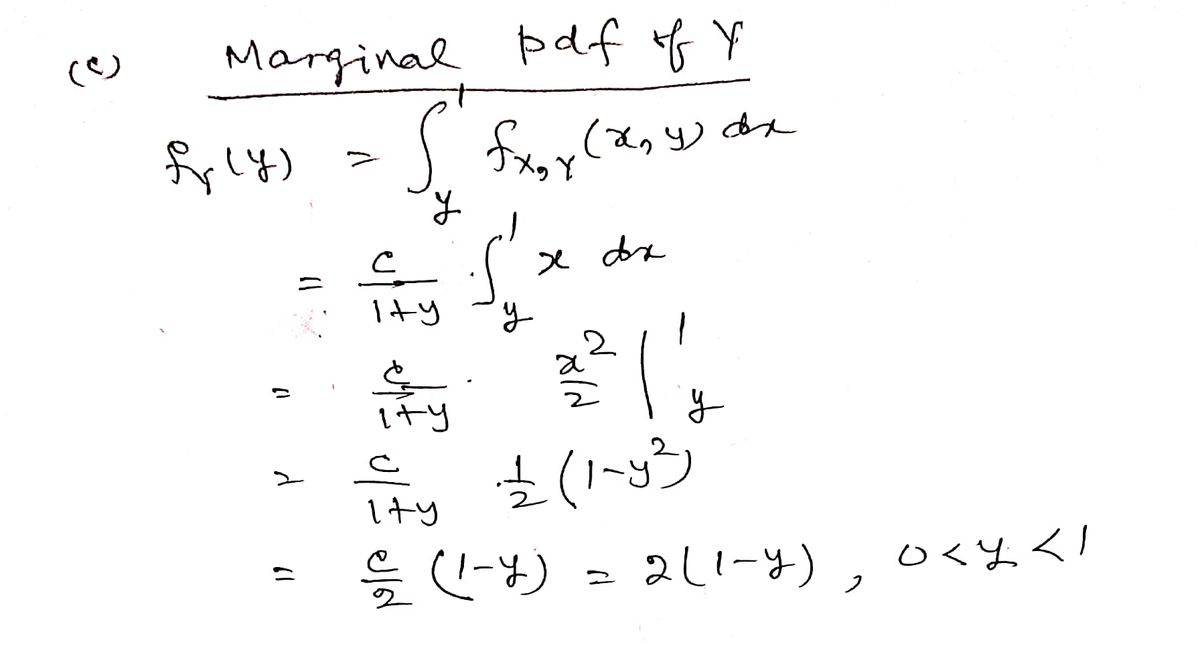 (c) Marginal pdf of Y
f_Y(y) = ∫_y^1 f_{X,Y}(x, y) dx
= c/(1+y) · ∫_y^1 x dx
= c/(1+y) · x²/2 |_y^1
= c/(1+y) · 1/2 (1-y²)
= c/2 (1-y) = 2(1-y), 0<y<1